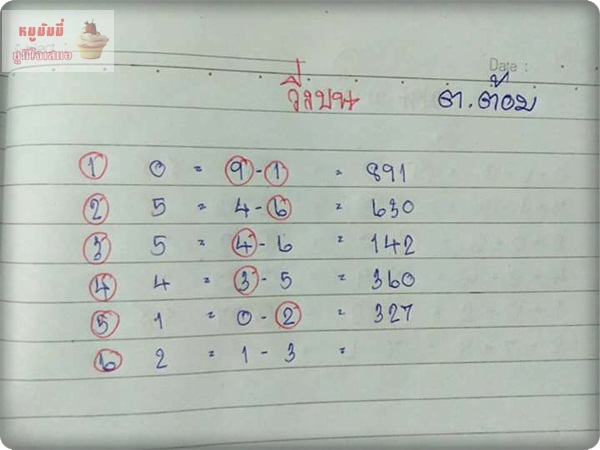 หมูมัมมี่
ภูมิใจเสนอ
Date :
วิ่งบน ต.ต้อม
1 0 = 9-1 = 891
2 5 = 4-6 = 630
3 5 = 4-6 = 142
4 4 = 3-5 = 360
5 1 = 0-2 = 327
6 2 = 1-3 =